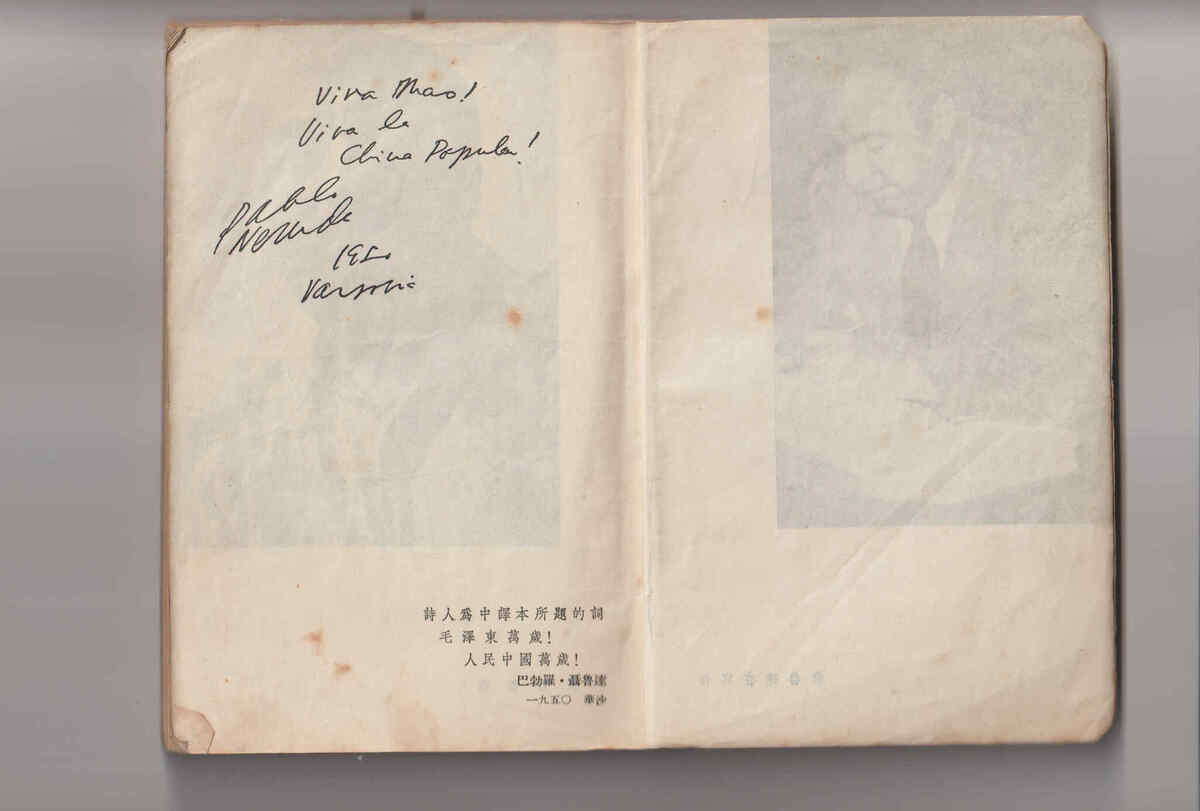 Viva Mao!
Viva la
China Popular!
Pablo
Neruda
1950
Varsovia
詩人爲中譯本所題的詞
毛澤東萬歲!
人民中國萬歲!
巴勃羅·聶魯達
一九五〇 華沙